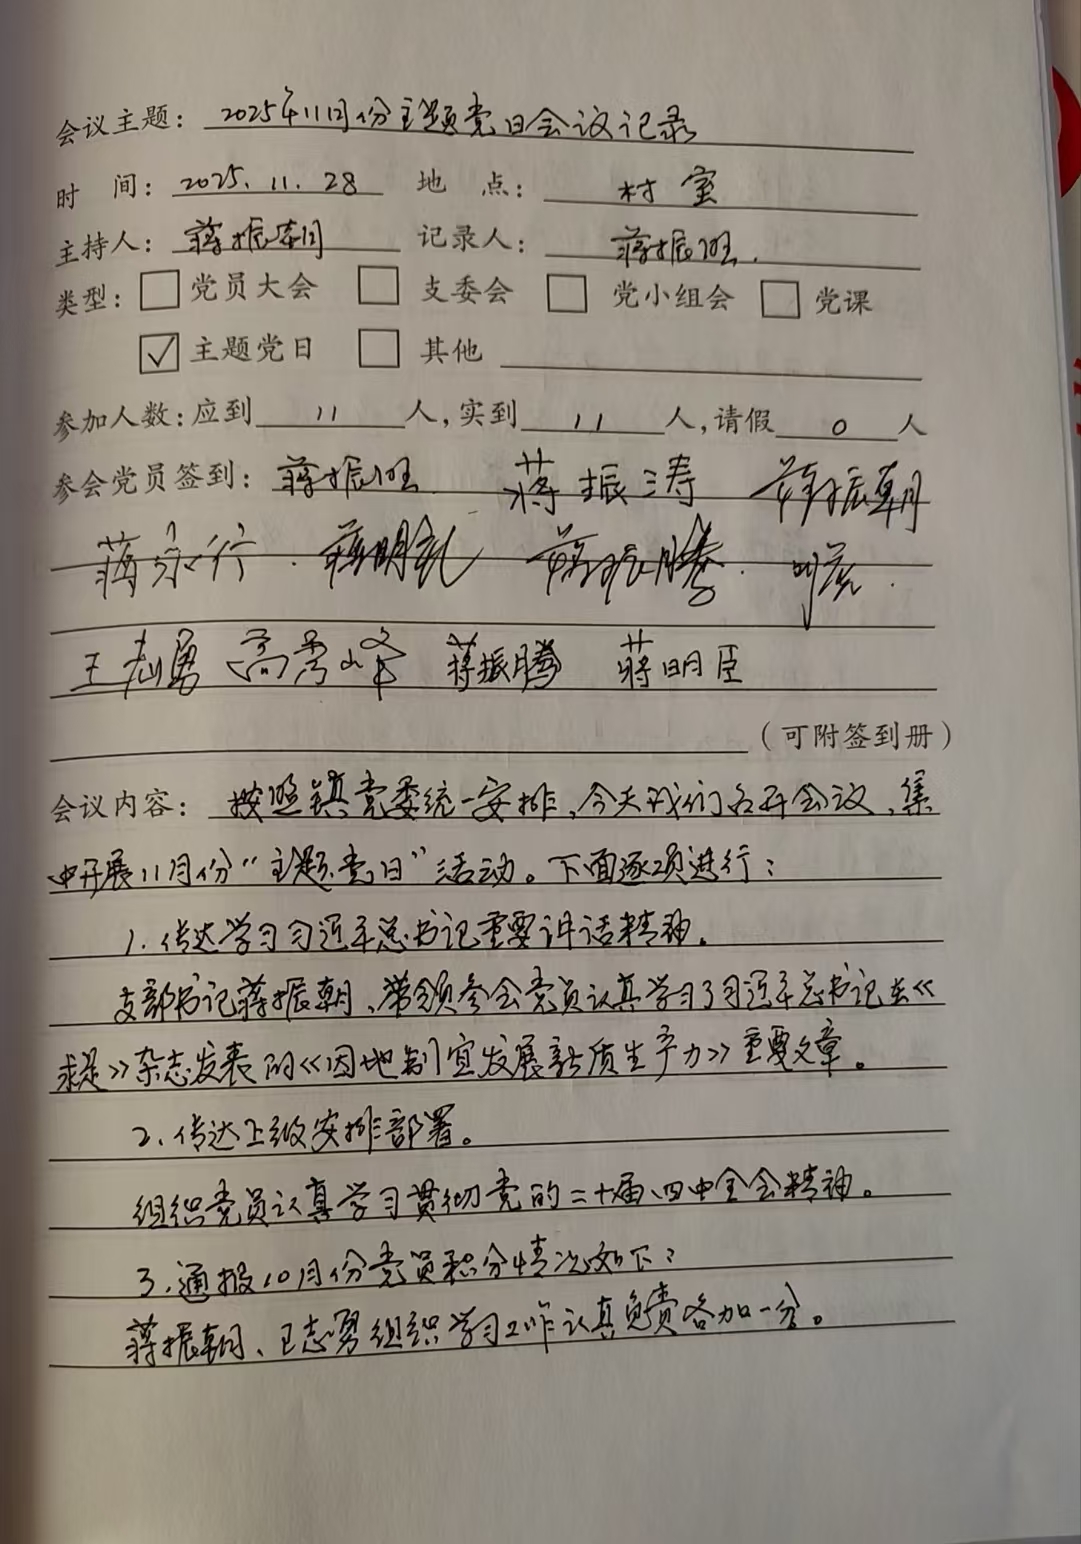 会议主题：2025年11月份主题党日会议记录
时 间：2025.11.28 地 点：村室
主持人：蒋振朝 记录人：蒋振旺.
类型：□党员大会 □支委会 □党小组会 □党课
☑主题党日 □其他
参加人数：应到11人，实到11人，请假0人
参会党员签到：蒋振旺 蒋振涛 蒋振朝
蒋永行 蒋明乾 蒋振腾
王志勇 高秀峰 蒋振腾 蒋明臣
（可附签到册）
会议内容：按照镇党委统一安排，今天我们召开会议，集
中开展11月份“主题党日”活动。下面逐项进行：
1.传达学习习近平总书记重要讲话精神。
支部书记蒋振朝、带领参会党员认真学习了习近平总书记在《
求是》杂志发表的《因地制宜发展新质生产力》重要文章。
2、传达上级安排部署。
组织党员认真学习贯彻党的二十届四中全会精神。
3.通报10月份党员积分情况如下：
蒋振朝、王志勇组织学习工作认真负责各加一分。